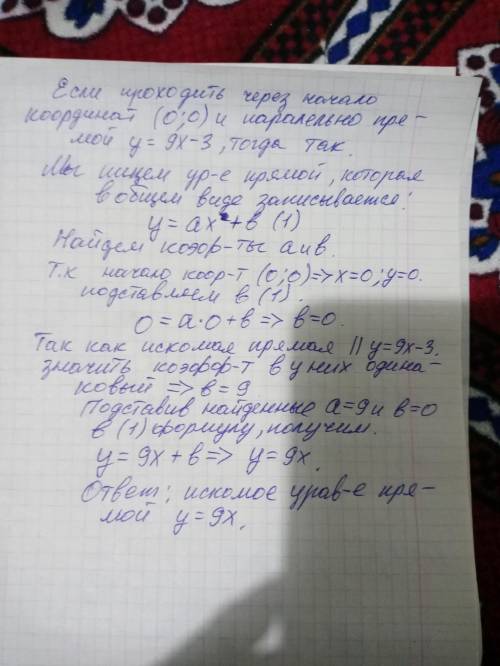 Если проходить через начало
координат (0;0) и паралельно пря-
мой y=9x-3, тогда так.
Мы пишем ур-е прямой, которая
в общем виде записывается:
y=ax+в (1)
Найдем коэф-ты a и в.
Т.к начало коор-т (0;0)=>x=0; y=0.
подставляем в (1).
0=a·0+в=>в=0.
Так как искомая прямая || y=9x-3,
значить коэфф-т в у них одина-
ковый => в=9
Подставив найденные a=9 и в=0
в (1) формулу, получим.
y=9x+в=> y=9x.
Ответ: искомое урав-е пря-
мой y=9x.